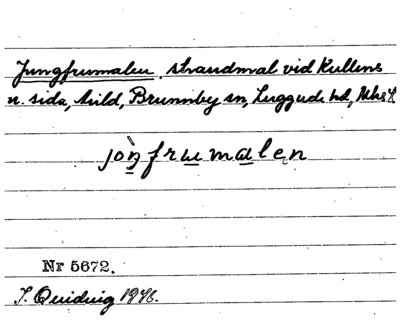 Jungfrumalen, strandmal vid Kullens
n. sida, Arild, Brunnby sn, Luggude hd, Mlhs L
jònfrumalen
Nr 5672.
I. Quiding 1946.